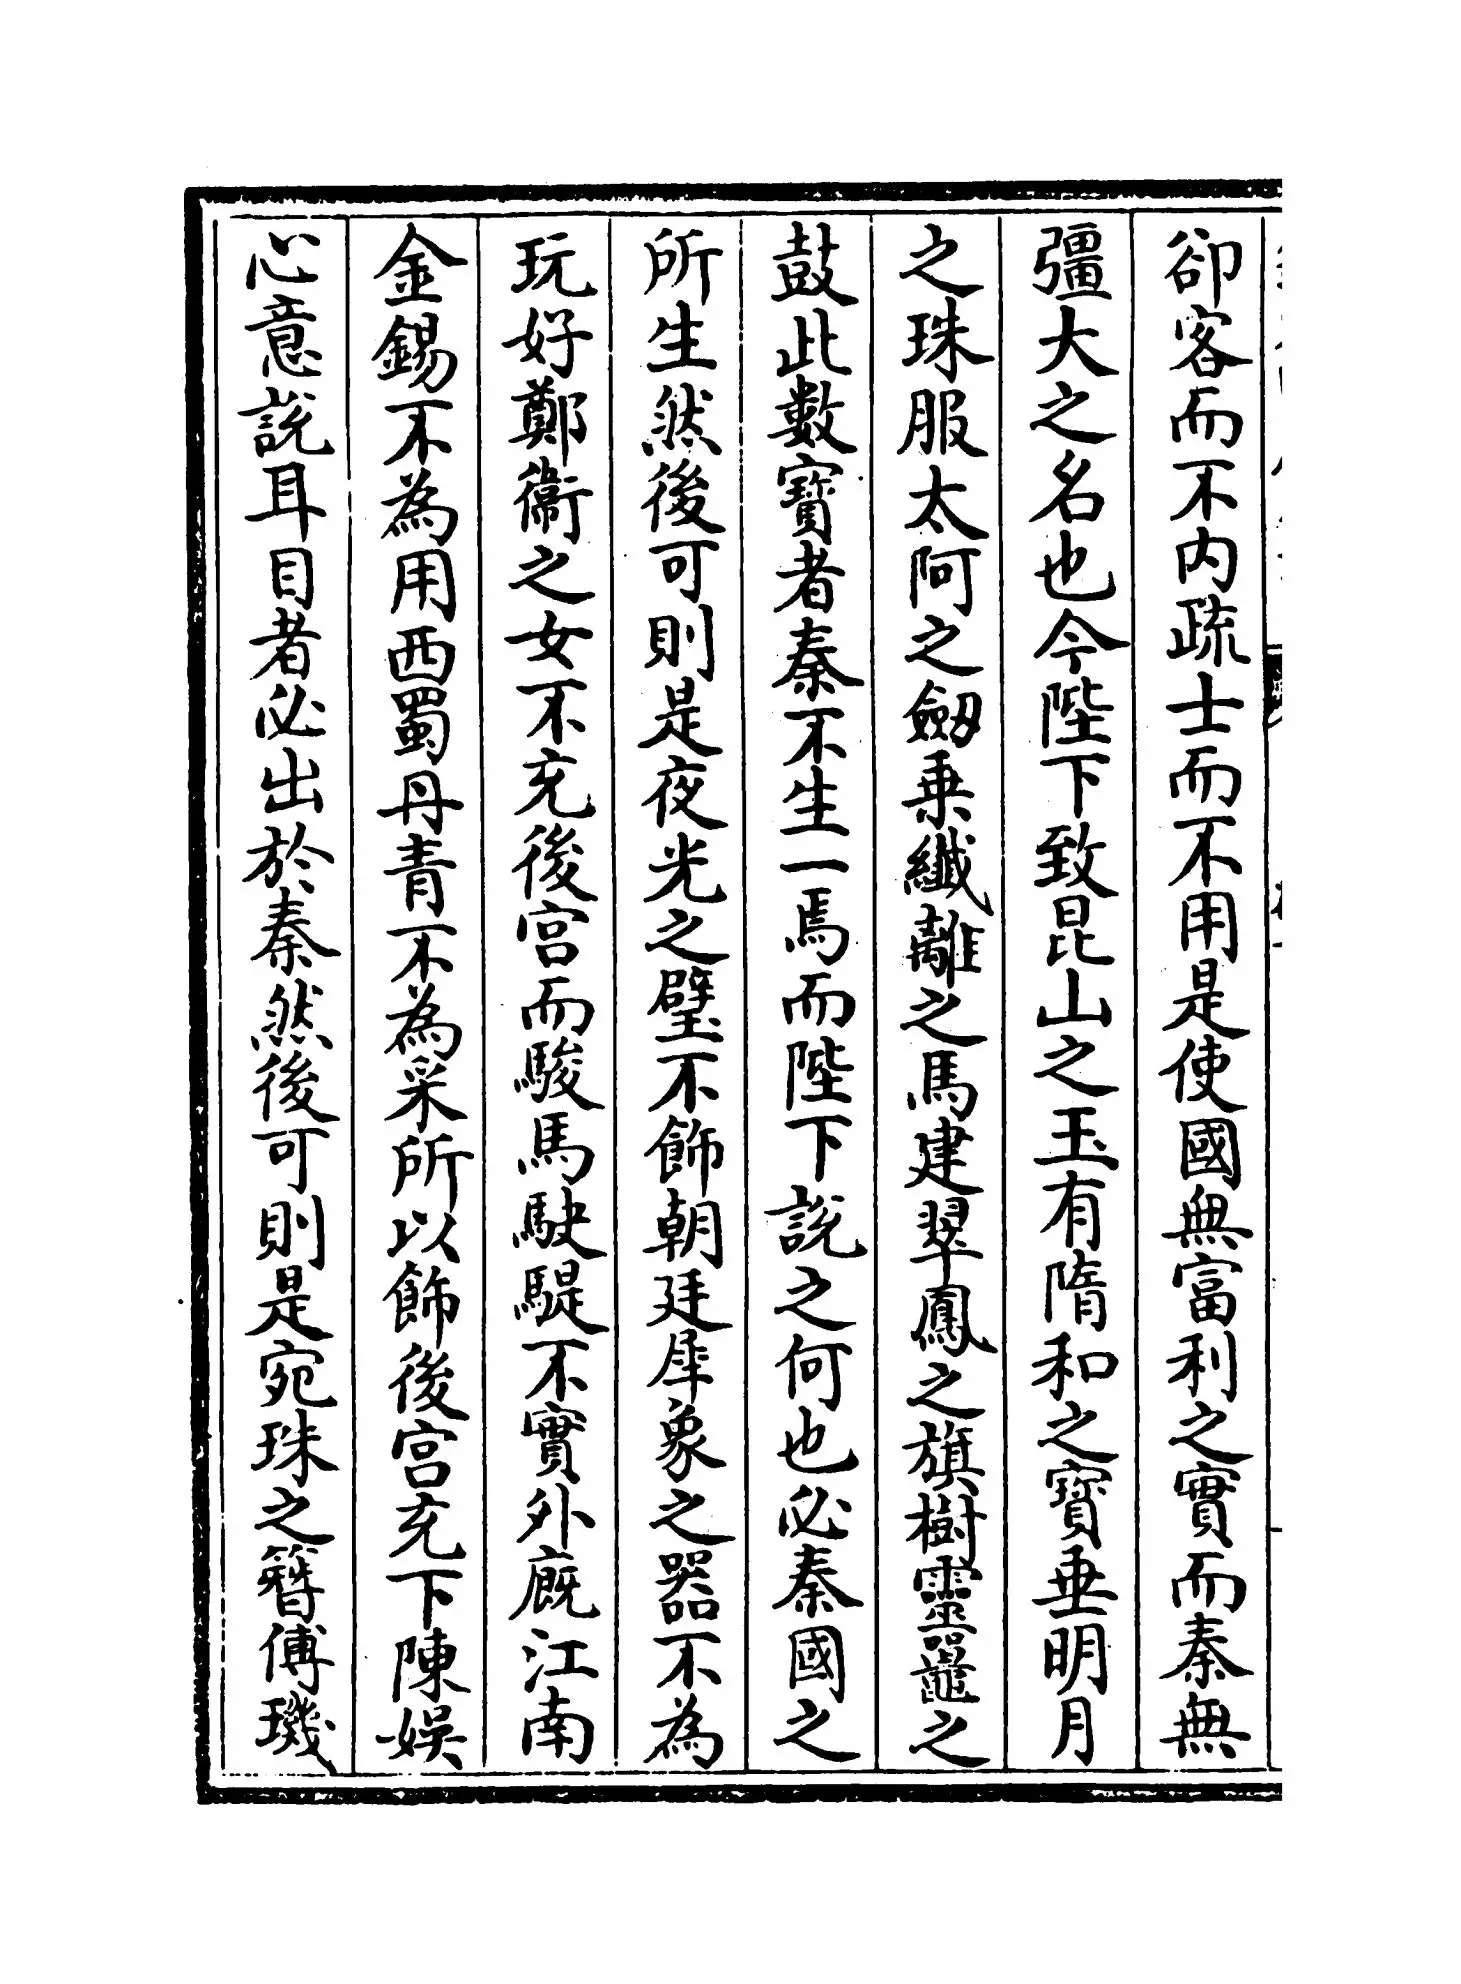 卻客而不内疏士而不用是使國無富利之實而秦無
彊大之名也今陛下致昆山之玉有隋和之寳垂明月
之珠服太阿之劒乗纎離之馬建翠鳳之旗樹靈鼉之
鼓此數寳者秦不生一焉而陛下說之何也必秦國之
所生然後可則是夜光之璧不飾朝廷犀象之器不為
玩好鄭衞之女不充後宫而駿馬駃騠不實外廐江南
金錫不為用西蜀丹青不為采所以飾後宫充下陳娱
心意說耳目者必出於秦然後可則是宛珠之簪傅璣